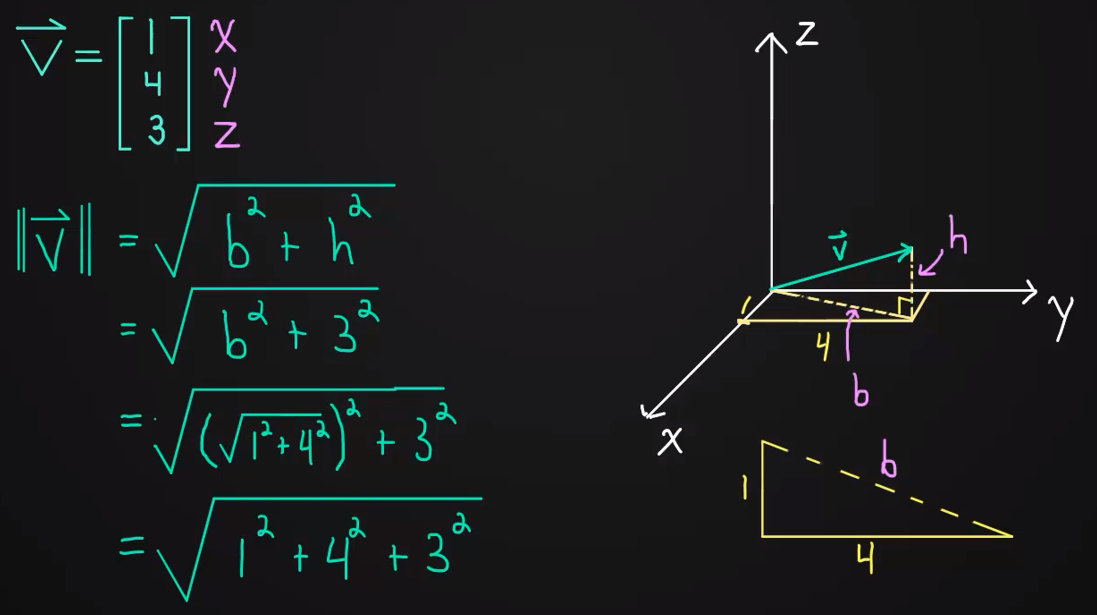 v = [1 4 3] x y z
‖v‖ = √(b² + h²)
= √(b² + 3²)
= √((√(1² + 4²))² + 3²)
= √(1² + 4² + 3²)
z
v
h
y
1
4
b
x
b
1
4